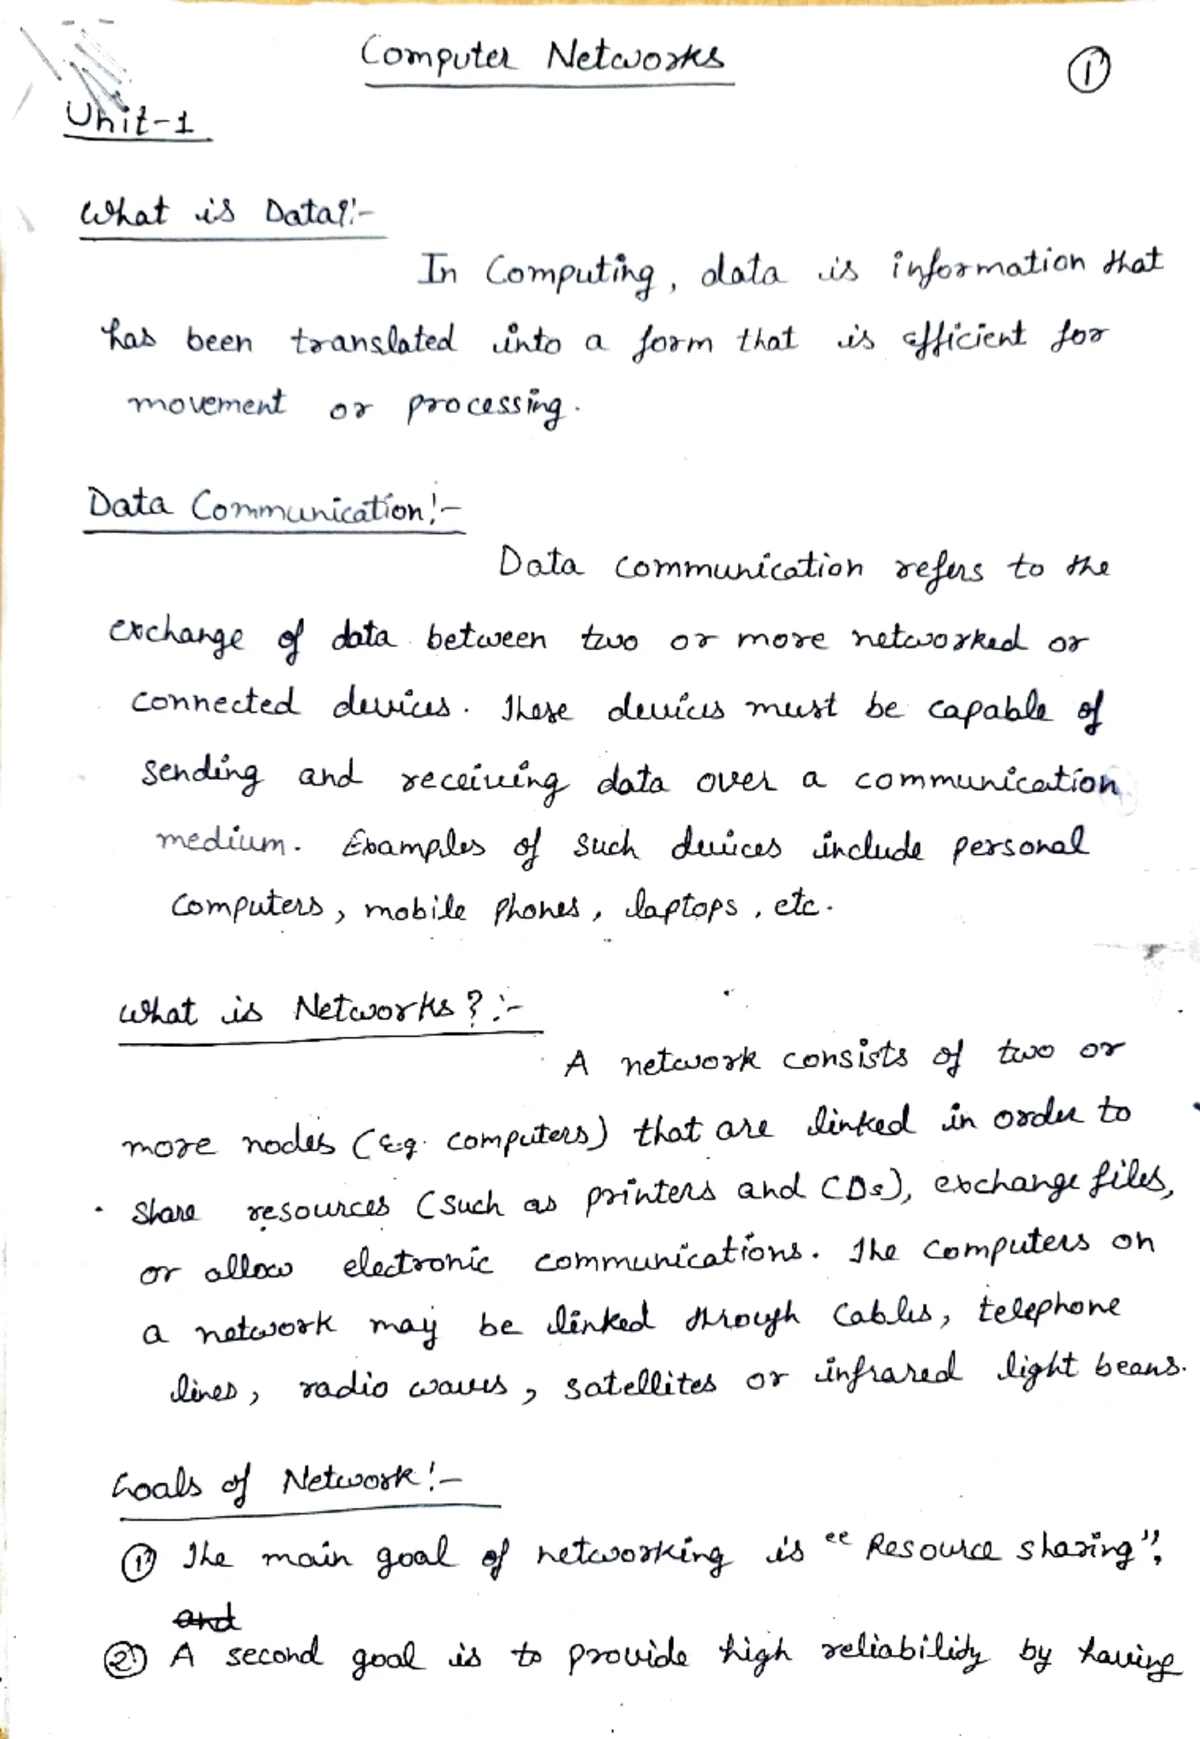 Computer Networks
1
Unit-1
What is Data?:-
In Computing, data is information that
has been translated into a form that is efficient for
movement or processing.
Data Communication:-
Data communication refers to the
exchange of data between two or more networked or
connected devices. These devices must be capable of
sending and receiving data over a communication
medium. Examples of such devices include personal
computers, mobile phones, laptops, etc.
What is Networks?:-
A network consists of two or
more nodes (E.g. computers) that are linked in order to
share resources (such as printers and CDs), exchange files,
or allow electronic communications. The computers on
a network may be linked through Cables, telephone
lines, radio waves, satellites or infrared light beans.
Goals of Network:-
1) The main goal of networking is "Resource sharing",
and
2) A second goal is to provide high reliability by having